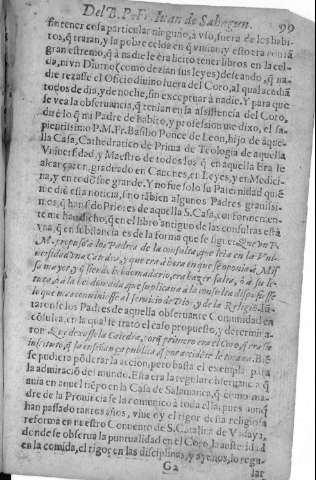 Del B. P. Fr. Iuan de Sahagun. 99
sin tener cosa particular ninguno, à vso, fuera de los habi-
tos, q̃ traian, y la pobre celda en q̃ viuian, y esto era con tã
gran estremo, q̃ à nadie le era licito tener libros en la cel-
da, ni vn Diurno (como dezian sus leyes) deseando, q̃ na-
die rezasse el Oficio diuino fuera del Coro, al qual acudiã
todos de dia, y de noche, sin exceptuar à nadie. Y para que
se vea la obseruancia, q̃ tenian en la assistencia del Coro,
diré lo q̃ mi Padre de habito, y profession me dixo, el sa-
pientissimo P. M. Fr. Basilio Ponce de Leon, hijo de aque-
lla Casa, Cathedratico de Prima de Teologia de aquella
Vniuersidad, y Maestro de todos los q̃ en aquella Era le
alcançaron, graduado en Canones, en Leyes, y en Medici-
na, y en todo fue grande. Y no fue solo su Paternidad quiẽ
me diò esta noticia, sino tãbien algunos Padres grauissi-
mos, q̃ han sido Priores de aquella S. Casa, conformemen-
te me han dicho, q̃ en el libro antiguo de las consultas està
vna, q̃ en substancia es de la forma que se sigue: Que vn P.
M. propuso à los Padres de la consulta, que leia en la Vni-
versidad vna Catedra, y que era à hora en que se
à los Padres de aquella obseruante Comunidad en
cõsulta, en la qual se tratò el caso propuesto, y determina-
ron: Que dexasse la Catedra, porq̃ primero era el Coro,
se pudiera põderar la accion, pero basta el exemplo para
la admiracion del mundo. Esta era la regular obseruancia q̃
auia en aquel tiẽpo en la Casa de Salamanca, q̃ como ma-
dre de la Prouincia se la comunicò à toda ella, pues aunq̃
han passado tantos años, viue oy el rigor desta religiosa
reforma en nuestro Conuento de S. Catalina de Vadaya,
donde se obserua la puntualidad en el Coro, la austeridad
en la comida, el rigor en las disciplinas, y ayunos, lo regu-
G2 lar